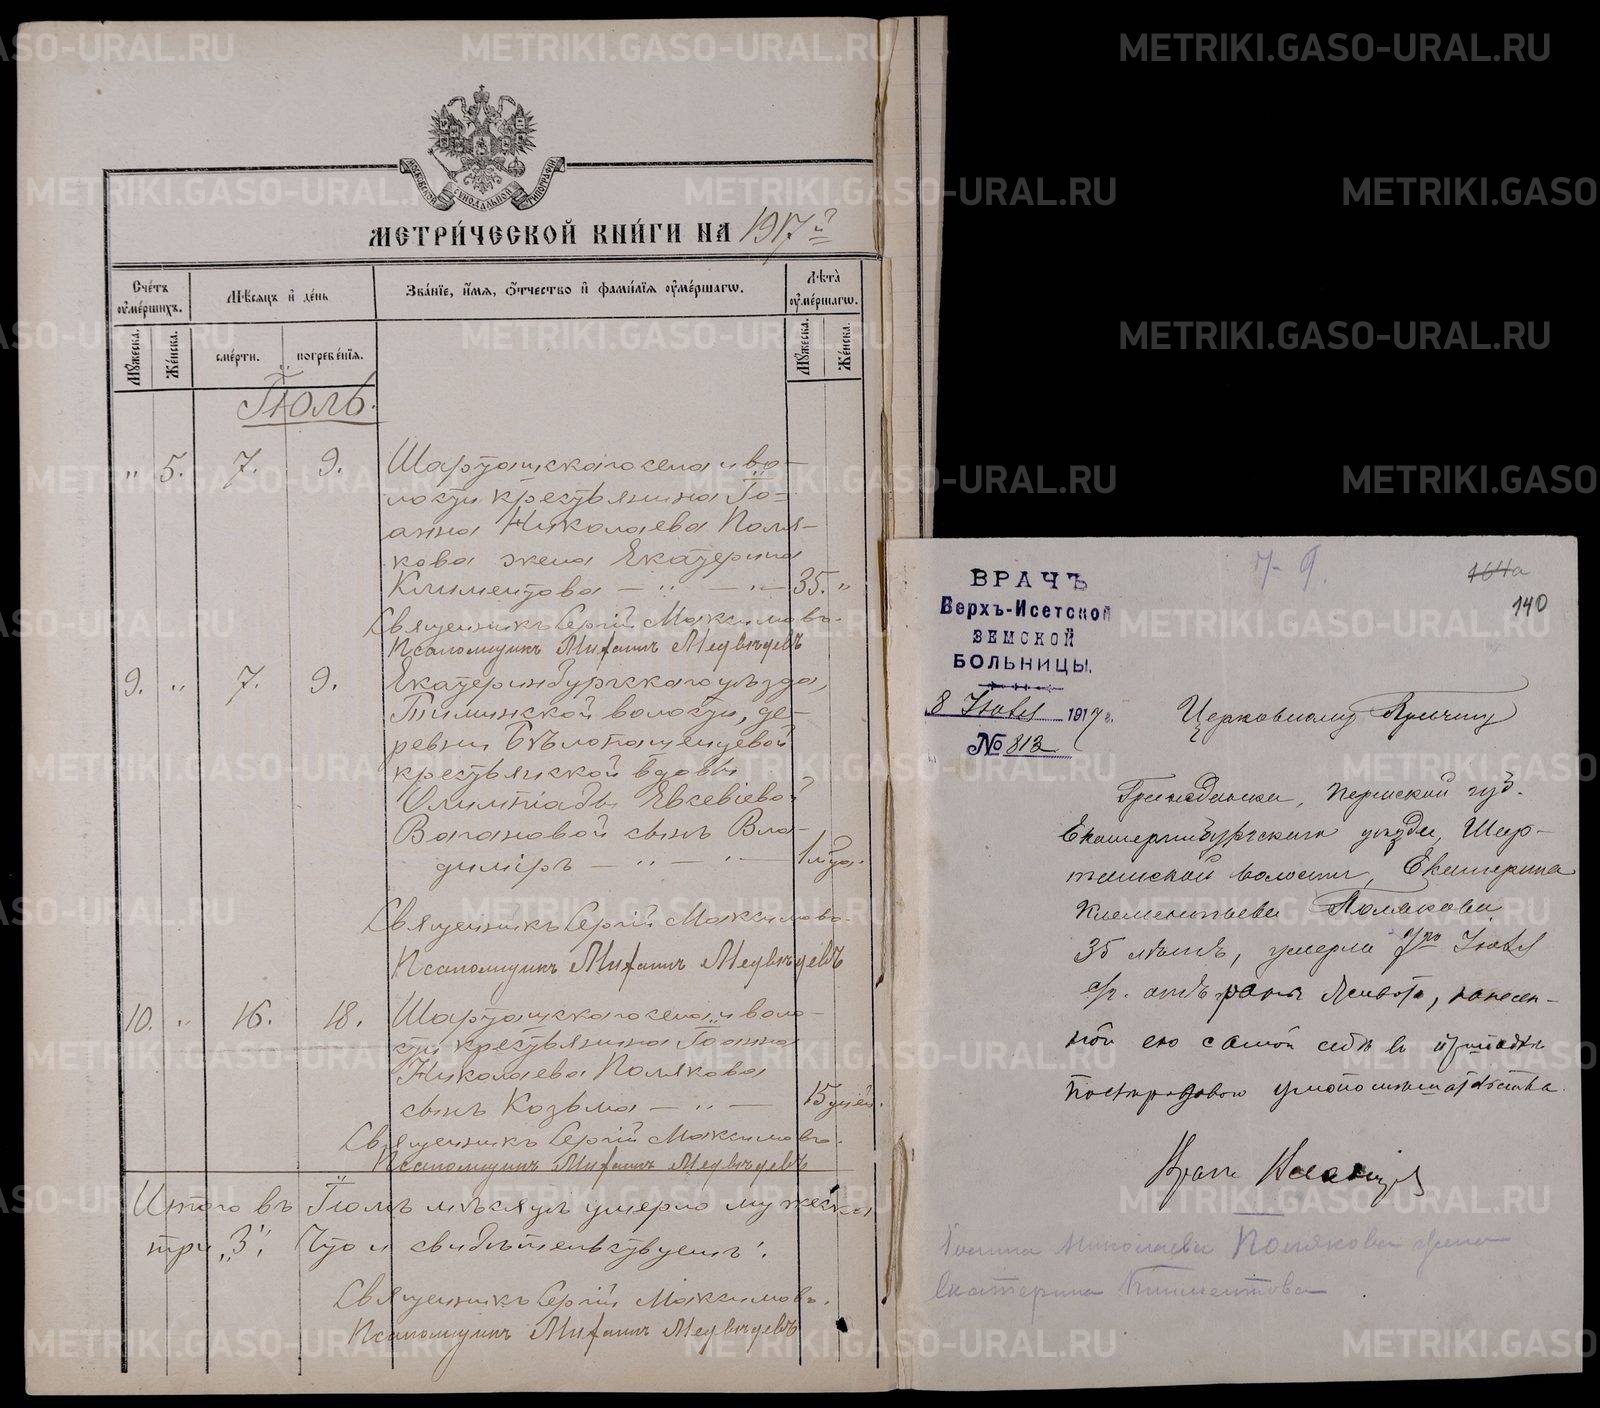 МЕТРИ́ЧЕСКОЙ КНИ́ГИ НА 1917й
Сче́тъ ᲂумершихъ.
Мѣсяцъ и де́нь
Зва́нїе, и҆мя, ѻ҆́тчество и҆ фами́лїя ᲂу҆ме́ршагѡ.
Лѣта̀ ᲂу҆ме́ршагѡ.
Мꙋ́жеска.
Же́нска.
сме́рти.
погребе́нїя.
Мꙋ́жеска.
Же́нска.
Іюль.
" 5. 7. 9. Шарташскаго села и во-
лости крестьянина Іо-
анна Николаева Поля-
кова жена Екатерина
Климентова — " — " — 35. "
Священникъ Сергій Максимовъ.
Псаломщикъ Михаилъ Медвѣдевъ
9. " 7. 9. Екатеринбургскаго уѣзда,
волости, де-
ревни
крестьянской вдовы
Олимпіады Евсевіевой
Вагановой сынъ Вла-
диміръ — " — " — 1 года.
Священникъ Сергій Максимовъ.
Псаломщикъ Михаилъ Медвѣдевъ
10. " 16. 18. Шарташскаго села и воло-
сти крестьянина Іоанна
Николаева Полякова
сынъ Козьма — " — 15 дней.
Священникъ Сергій Максимовъ.
Псаломщикъ Михаилъ Медвѣдевъ
Итого въ Іюлѣ мѣсяцѣ умерло мужеска
три "3". Что и свидѣтельствуемъ:
Священникъ Сергій Максимовъ.
Псаломщикъ Михаилъ Медвѣдевъ
7-9.
164а
140
ВРАЧЪ
Верхъ-Исетской
ЗЕМСКОЙ
БОЛЬНИЦЫ.
8 Іюля 1917 г.
№ 813
Церковному Причту
Гражданка, Пермской губ.
Екатеринбургскаго уѣзда, Шар-
ташской волости, Екатерина
Клементьева Полякова
35 лѣтъ, умерла 7го Іюля
с/г. отъ раны живота, нанесен-
ной ею самой себѣ въ припадкѣ
послѣродового умопомѣшательства.
Врачъ
Іоанна Николаева Полякова жена
Екатерина Климентова
METRIKI.GASO-URAL.RU